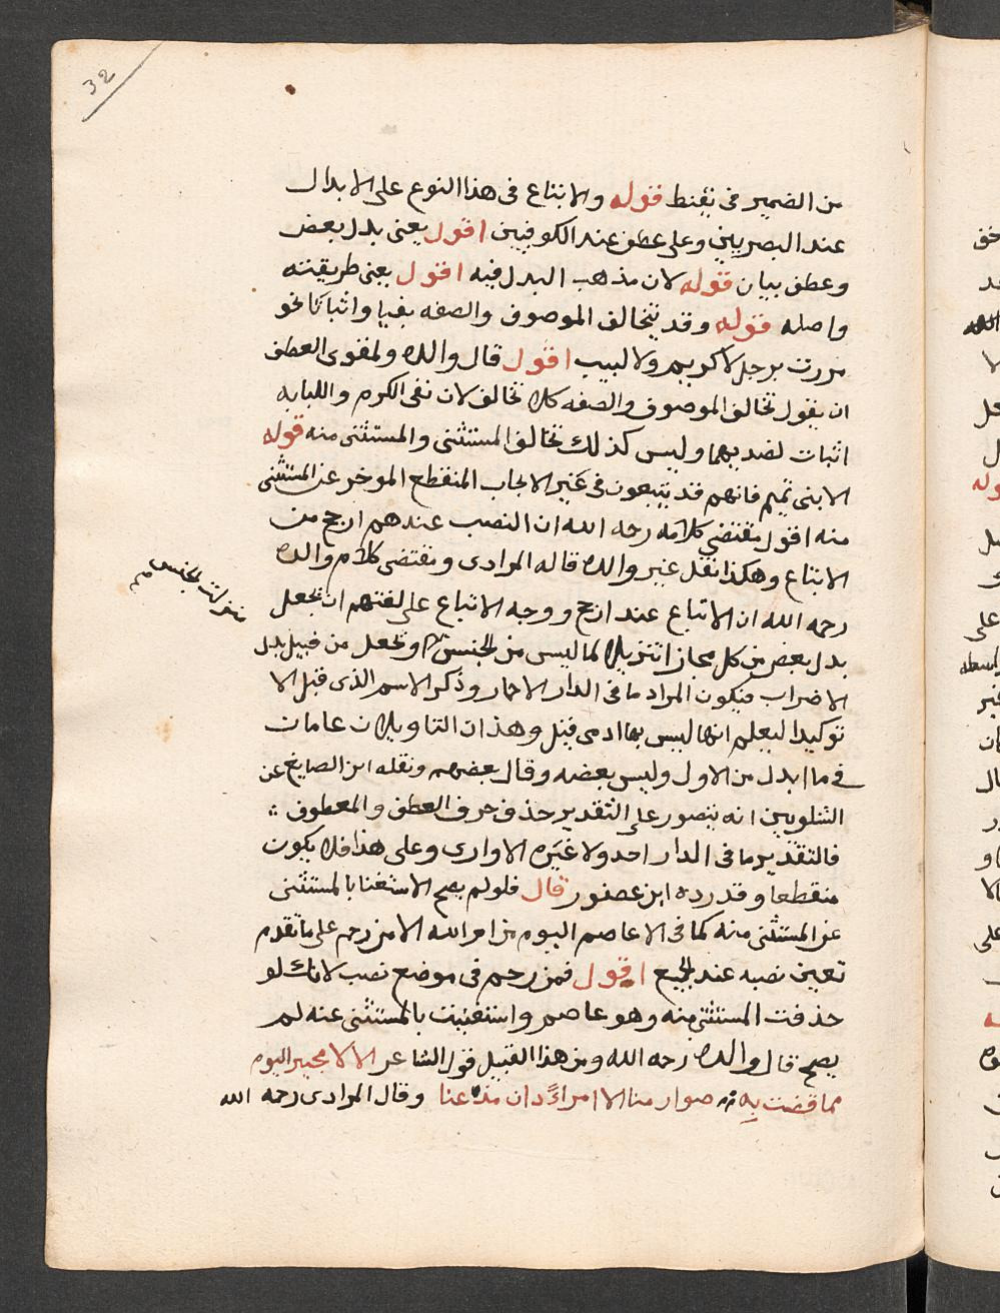 32
من الضمير فى يقنط قوله والاتباع فى هذا النوع على الابدال
عند البصريين وعلى عطف عند الكوفيين اقول يعنى بدل بعض
وعطف بيان قوله لان مذهب البدل فيه اقول يعنى طريقته
واصله قوله وقد يتخالف الموصوف والصفه نفيا واثباتا نحو
مررت برجل لا كريم ولا لبيب اقول قال والده ولمقوى العطف
ان يقول تخالف الموصوف والصفه كلا تخالف لان نفى الكرم واللبابه
اثبات لضديهما وليس كذلك تخالف المستثنى والمستثنى منه قوله
الابنى تميم فانهم قد يتبعون فى غير الايجاب المنقطع الموخر عن المستثنى
منه اقول مقتضى كلامه رحه الله ان النصب عندهم ارجح من
الاتباع وهكذا نقل غير والده قاله المرادى ومقتضى كلام والده
رحمه الله ان الاتباع عند ارجح ووجه الاتباع على لغتهم ان تجعل
بدل بعض من كل مجازا تنزيلا لما ليس من الجنس وتجعل من قبيل بدل
الاضراب فيكون المراد ما فى الدار الاحمار وذكر الاسم الذى قبل الا
توكيدا ليعلم انها ليس بها ادمى قبل وهذان التاويلان عامان
فى ما ابدل من الاول وليس بعضه وقال بعضهم ونقله ابن الصايغ عن
الشلوبين انه يتصور على التقدير حذف حرف العطف والمعطوف
فالتقدير ما فى الدار احد ولا غيره الا وارى وعلى هذا فلا يكون
منقطعا وقد رده ابن عصفور قال فلو لم يصح الاستغنا بالمستثنى
عن المستثنى منه كما فى لا عاصم اليوم من امر الله الا من رحم على ما تقدم
تعين نصبه عند الجميع اقول فمن رحم فى موضع نصب لانك لو
حذفت المستثنى منه وهو عاصم واستغنيت بالمستثنى عنه لم
يصح قال والده رحه الله ومن هذا القبيل قول الشاعر الا لا مجير اليوم
مما قضت به صوارمنا الا امراء دان مذعنا وقال المرادى رحمه الله